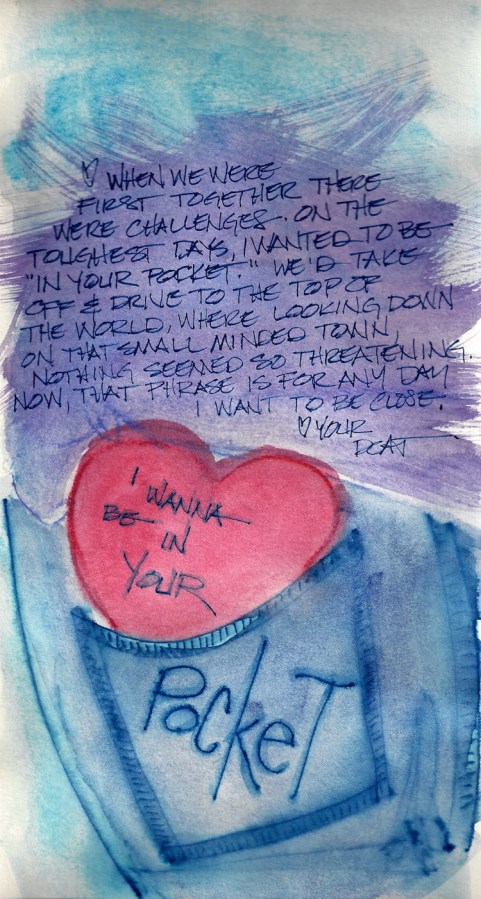 ♡ WHEN WE WERE
FIRST TOGETHER THERE
WERE CHALLENGES. ON THE
TOUGHEST DAYS, I WANTED TO BE
"IN YOUR POCKET." WE'D TAKE
OFF & DRIVE TO THE TOP OF
THE WORLD, WHERE LOOKING DOWN
ON THAT SMALL MINDED TOWN,
NOTHING SEEMED SO THREATENING.
NOW, THAT PHRASE IS FOR ANY DAY
I WANT TO BE CLOSE.
♡ YOUR
DCAT
I WANNA
BE IN
YOUR
POCKET